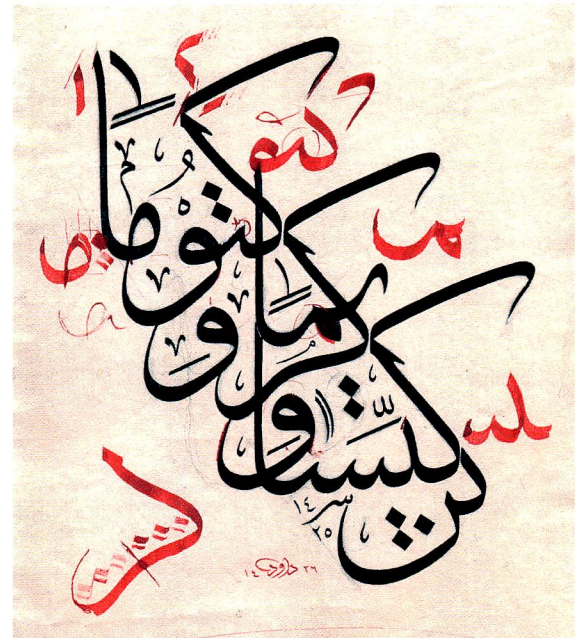 كن كيّسًا
وكريمًا
وكتومًا
داود ١٤٢٦